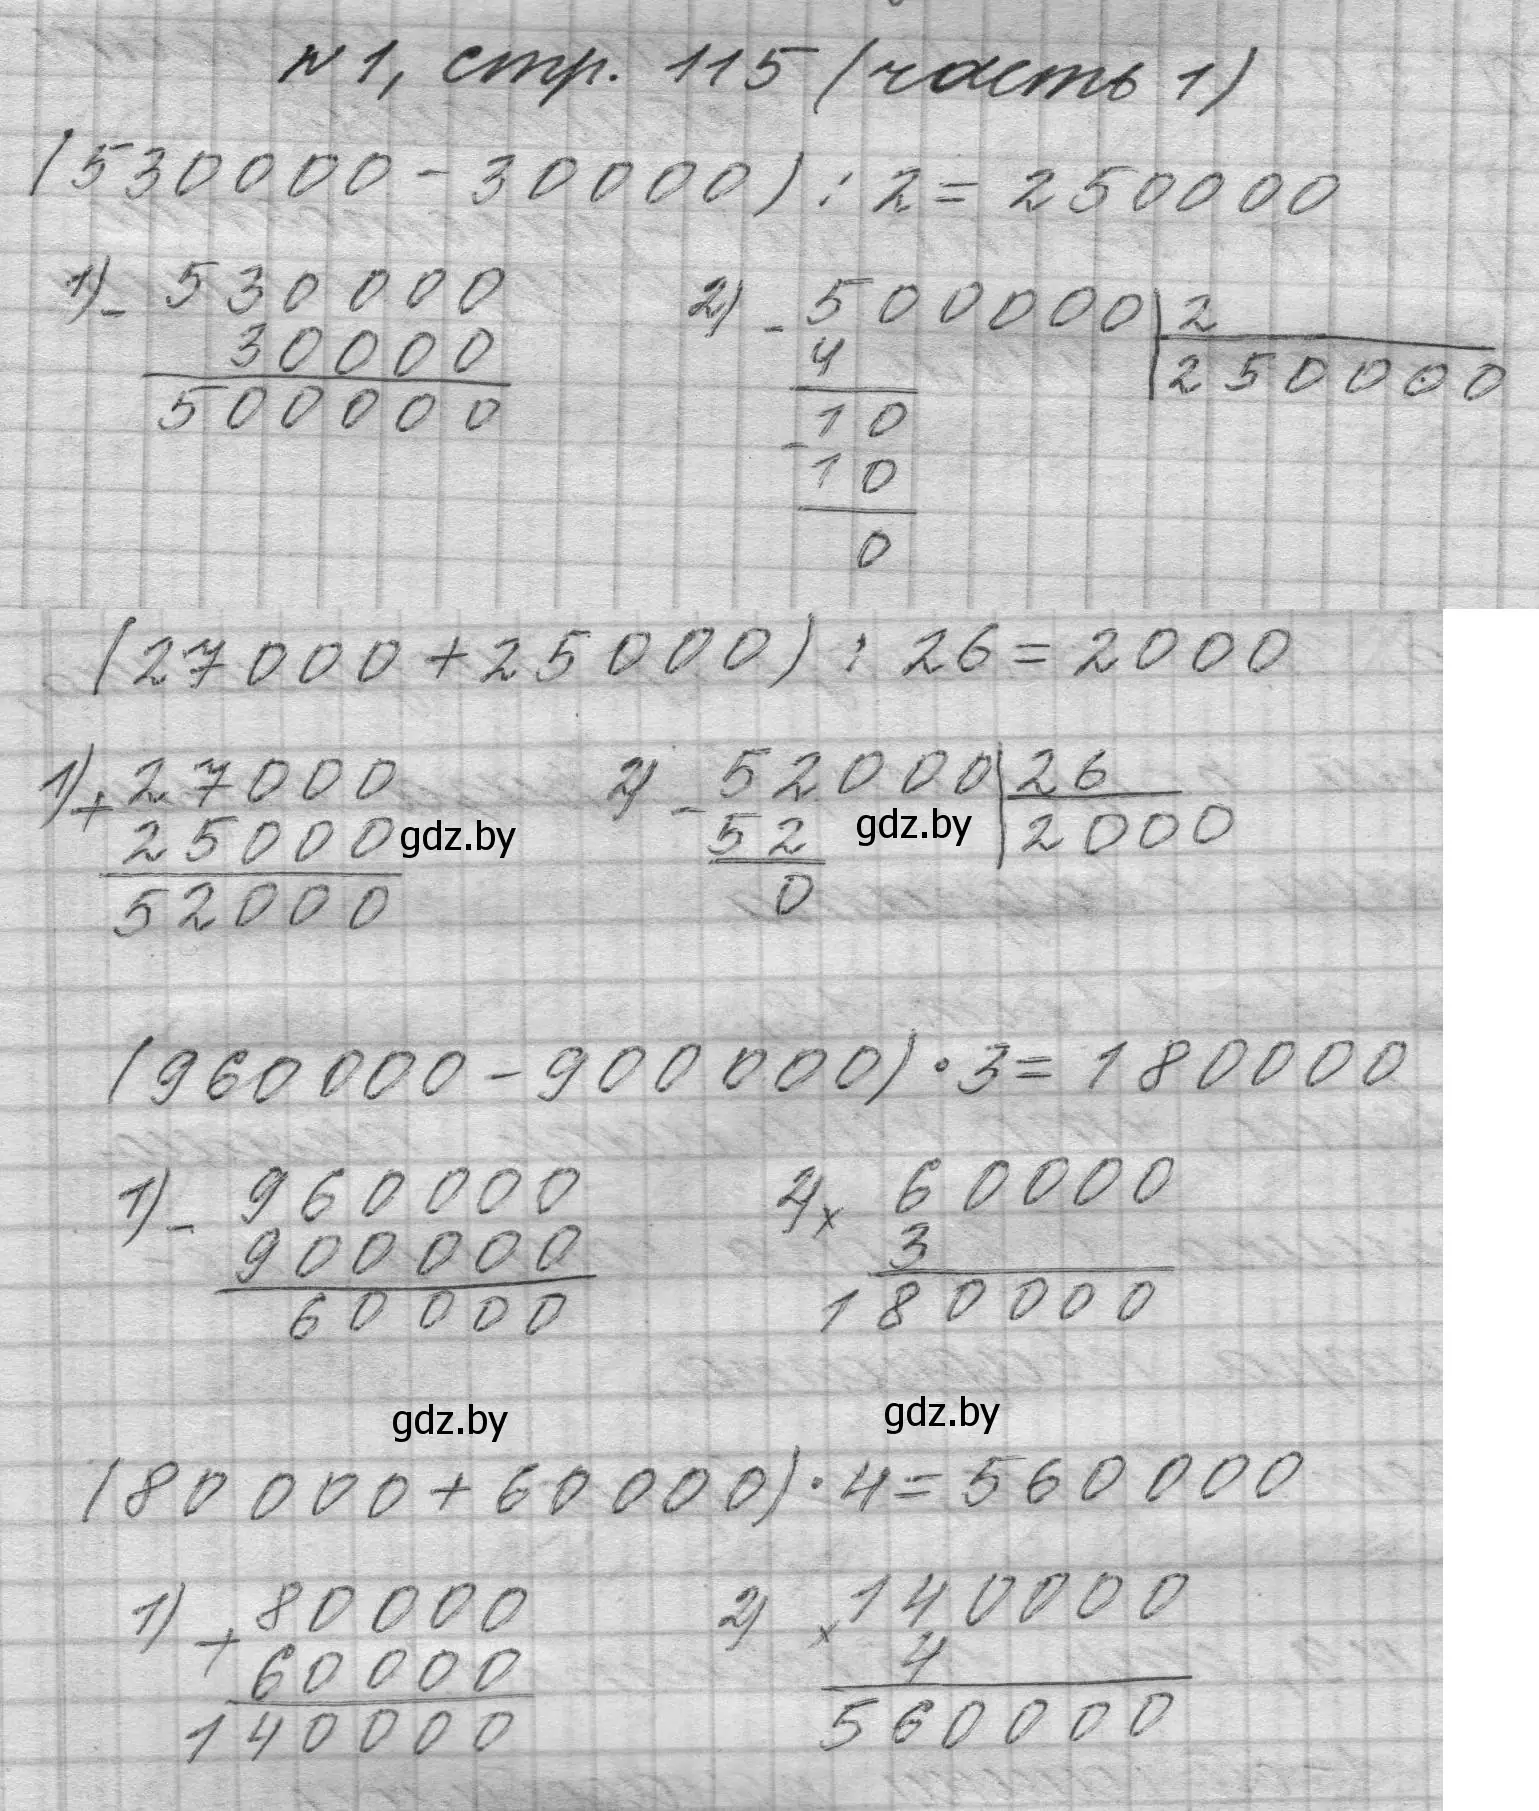 №1, стр. 115 (часть 1)
(530000-30000):2=250000
1) - 530000
30000
500000
2) - 500000 | 2
4 250000
- 10
10
0
(27000+25000):26=2000
1) + 27000
25000
52000
2) - 52000 | 26
52 2000
0
gdz.by gdz.by
(960000-900000)·3=180000
1) - 960000
900000
60000
2) x 60000
3
180000
gdz.by gdz.by
(80000+60000)·4=560000
1) + 80000
60000
140000
2) x 140000
4
560000